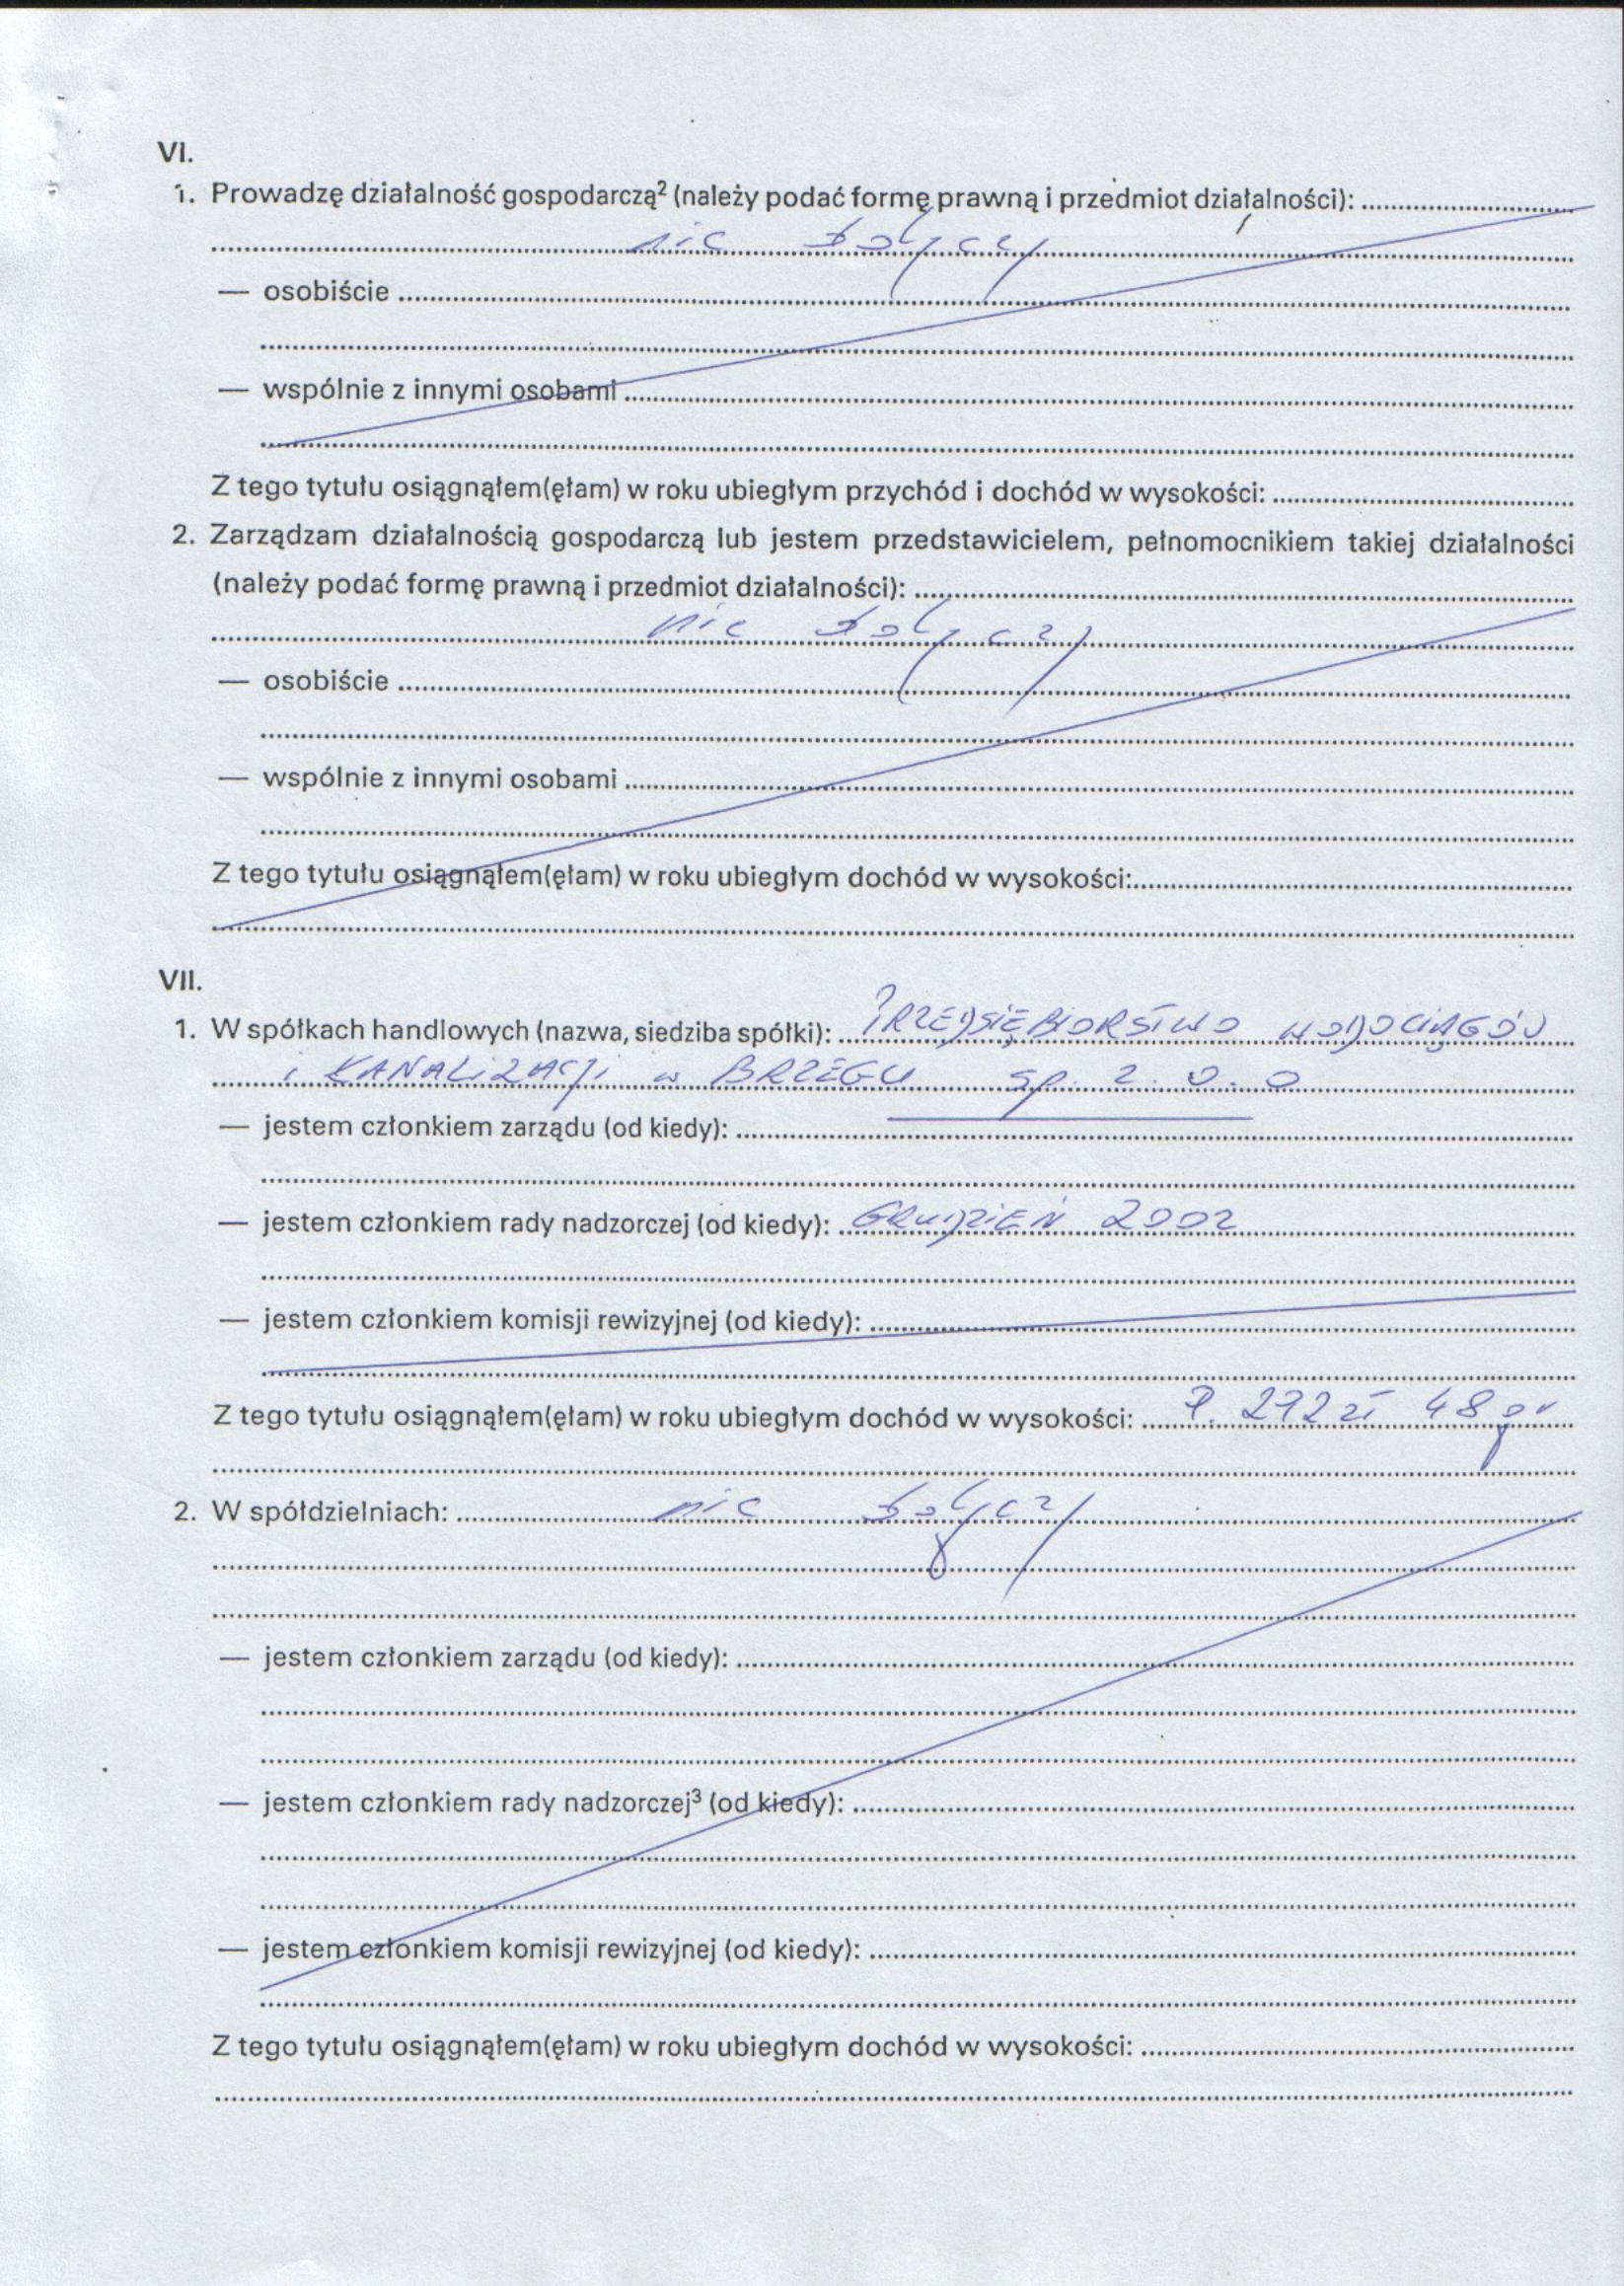 VI.
1. Prowadzę działalność gospodarczą² (należy podać formę prawną i przedmiot działalności):
nie dotyczy
— osobiście
— wspólnie z innymi osobami
Z tego tytułu osiągnąłem(ęłam) w roku ubiegłym przychód i dochód w wysokości:
2. Zarządzam działalnością gospodarczą lub jestem przedstawicielem, pełnomocnikiem takiej działalności
(należy podać formę prawną i przedmiot działalności):
nie dotyczy
— osobiście
— wspólnie z innymi osobami
Z tego tytułu osiągnąłem(ęłam) w roku ubiegłym dochód w wysokości:
VII.
1. W spółkach handlowych (nazwa, siedziba spółki): PRZEDSIĘBIORSTWO WODOCIĄGÓW
i KANALIZACJI w BRZEGU sp. z o. o
— jestem członkiem zarządu (od kiedy):
— jestem członkiem rady nadzorczej (od kiedy): GRUDZIEŃ 2002
— jestem członkiem komisji rewizyjnej (od kiedy):
Z tego tytułu osiągnąłem(ęłam) w roku ubiegłym dochód w wysokości: zł 48 gr
2. W spółdzielniach: nie dotyczy
— jestem członkiem zarządu (od kiedy):
— jestem członkiem rady nadzorczej³ (od kiedy):
— jestem członkiem komisji rewizyjnej (od kiedy):
Z tego tytułu osiągnąłem(ęłam) w roku ubiegłym dochód w wysokości: